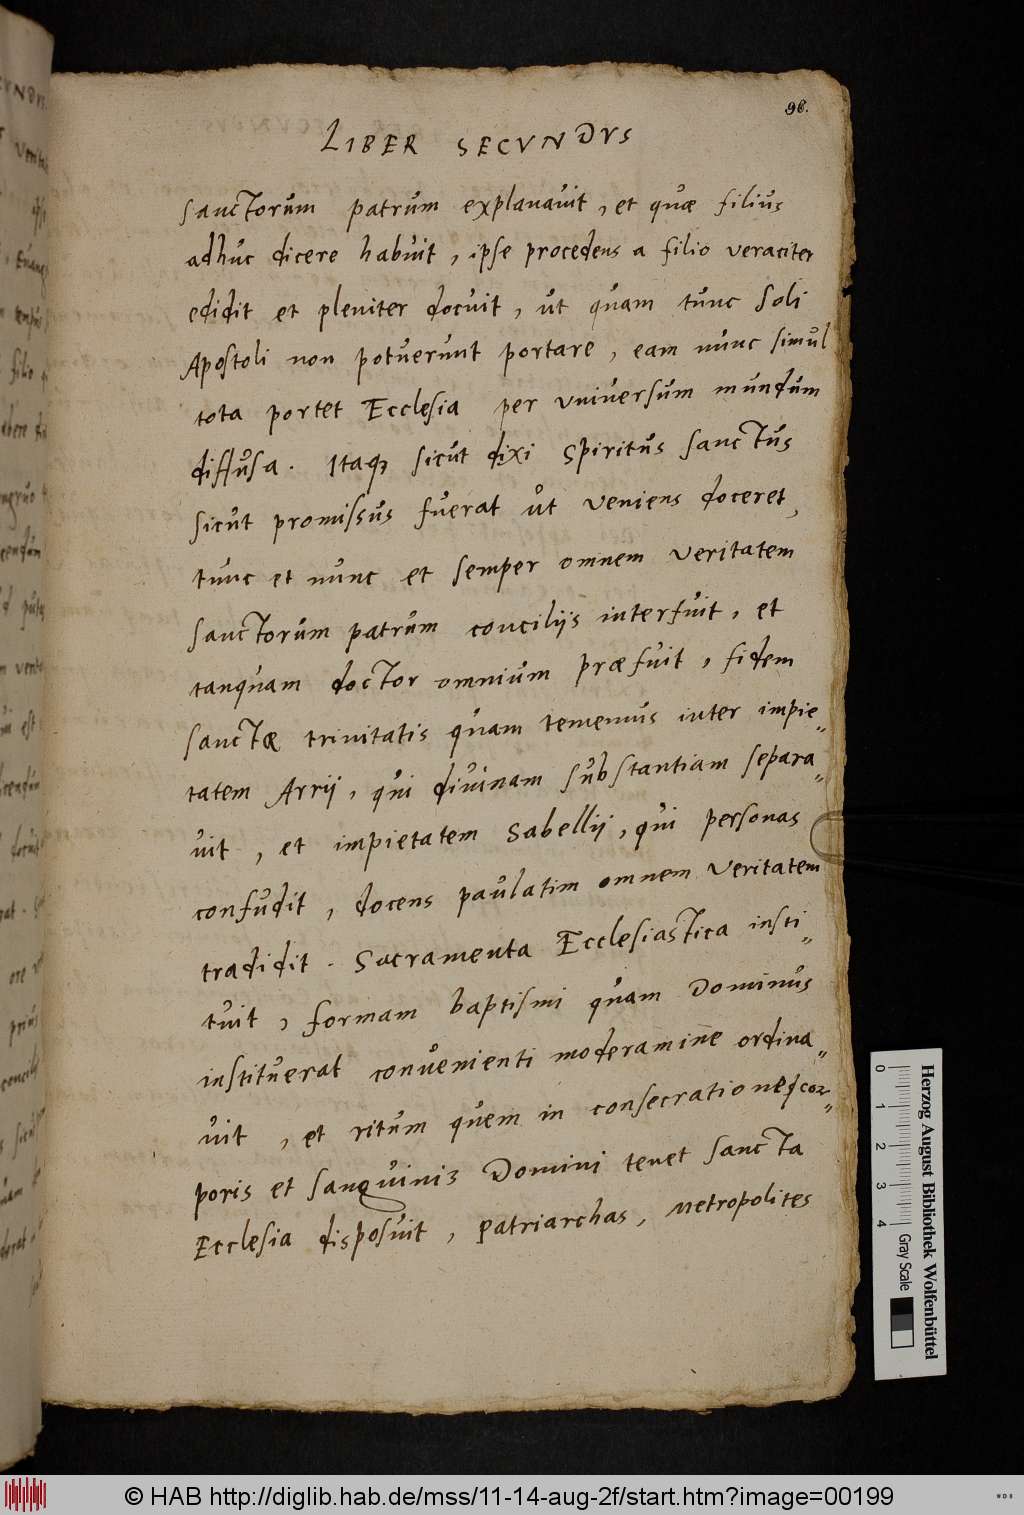 98.
LIBER SECVNDVS
sanctorum patrum explanauit, et quæ filius
adhuc dicere habuit, ipse procedens a filio veraciter
edidit et pleniter docuit, ut quam tunc soli
Apostoli non potuerunt portare, eam nunc simul
tota portet Ecclesia per vniuersum mundum
diffusa. Itaqꝫ sicut dixi Spiritus sanctus
sicut promissus fuerat ut veniens doceret,
tunc et nunc et semper omnem veritatem
sanctorum patrum conciliis interfuit, et
tanquam doctor omnium præfuit, fidem
sanctæ trinitatis quam tenemus inter impie„
tatem Arrij, qui diuinam substantiam separa„
uit, et impietatem Sabellij, qui personas
confudit, docens paulatim omnem veritatem
tradidit. Sacramenta Ecclesiastica insti„
tuit, formam baptismi quam Dominus
instituerat conuenienti moderamine ordina„
uit, et ritum quem in consecratione cor„
poris et sanguinis Domini tenet sancta
Ecclesia disposuit, patriarchas, metropolites
Herzog August Bibliothek Wolfenbüttel
0 1 2 3 4 Gray Scale
© HAB http://diglib.hab.de/mss/11-14-aug-2f/start.htm?image=00199